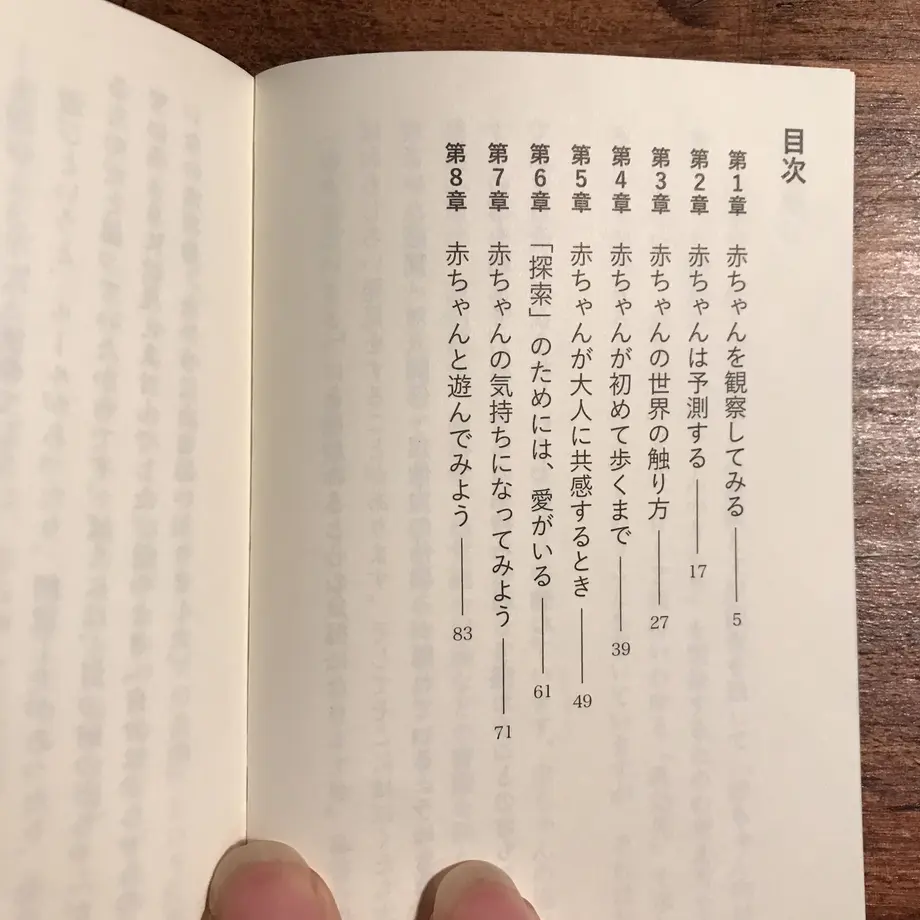 目次
第1章 赤ちゃんを観察してみる —— 5
第2章 赤ちゃんは予測する —— 17
第3章 赤ちゃんの世界の触り方 —— 27
第4章 赤ちゃんが初めて歩くまで —— 39
第5章 赤ちゃんが大人に共感するとき —— 49
第6章 「探索」のためには、愛がいる —— 61
第7章 赤ちゃんの気持ちになってみよう —— 71
第8章 赤ちゃんと遊んでみよう —— 83